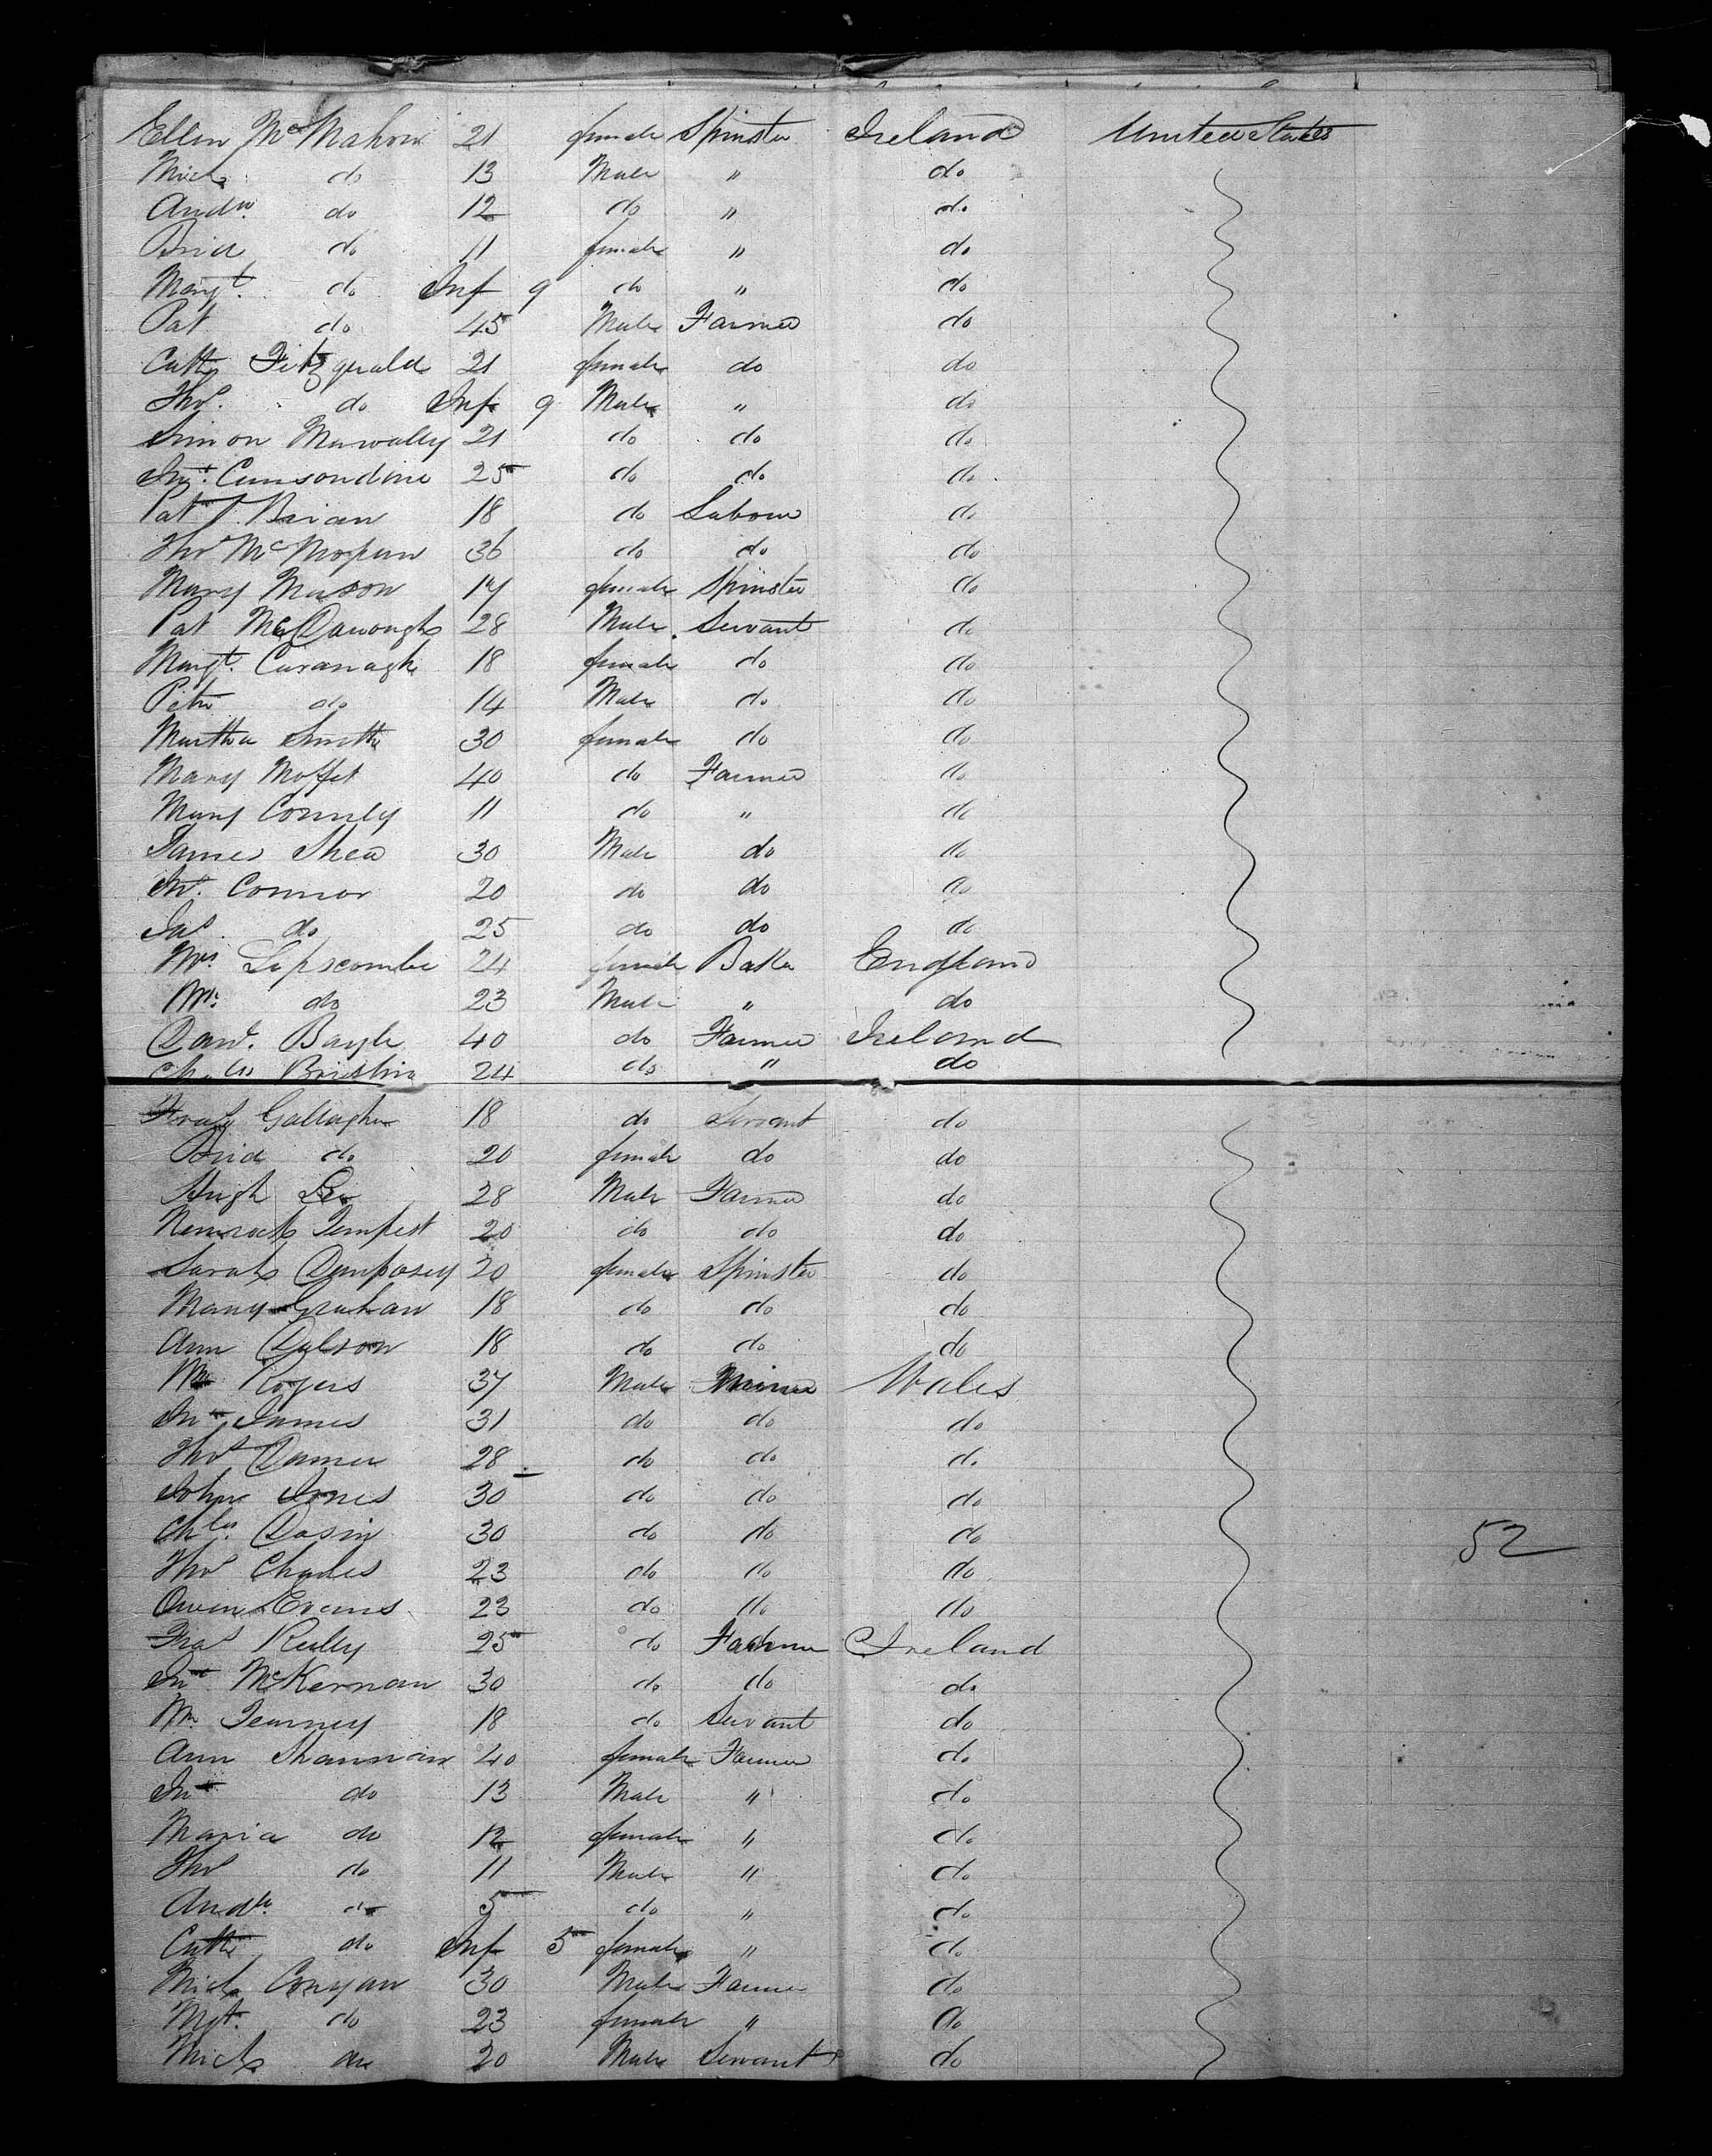 Ellen McMahon 21 female Spinster Ireland United States
Mich. do 13 Male " do
Andw. do 12 do " do
Brid do 11 female " do
Margt. do Inf 9 do " do
Pat do 45 Male Farmer do
Cath Fitzgerald 21 female do do
Thos. do Inf 9 Male " do
Simon 21 do do do
Jno. Cunsondine 25 do do do
Pat Brian 18 do Labour do
Thos 36 do do do
Mary Mason 17 female Spinster do
Pat McDanough 28 Male Servant do
Margt. Cavanagh 18 female do do
Peter do 14 Male do do
Martha Smith 30 female do do
Mary Moffet 40 do Farmer do
Mary Connely 11 do " do
James Shea 30 Male do do
Jno. Connor 20 do do do
Jas. do 25 do do do
Mrs Lipscombe 24 female Baker England
Mr. do 23 Male " do
Danl. Bayle 40 do Farmer Ireland
Chles 24 do " do
Gallagher 18 do Servant do
Brid do 20 female do do
Hugh 28 Male Farmer do
Tempest 20 do do do
Sarah Demposey 20 female Spinster do
Mary Grahan 18 do do do
Ann 18 do do do
Wm Rogers 37 Male Miner Wales
Jno James 31 do do do
Thos Damer 28 do do do
John Jones 30 do do do
Chles. Dasin 30 do do do 52
Thos Charles 23 do do do
Owen Evans 23 do do do
Fras Reilly 25 do Farmer Ireland
Jno McKernan 30 do do do
Wm Tearney 18 do Servant do
Ann Shannan 40 female Farmer do
Jno do 13 Male " do
Maria do 12 female " do
Thos do 11 Male " do
Andw. do 5 do " do
Cath do Inf 5 female " do
Mich Conyan 30 Male Farmer do
Mgt. do 23 female " do
Mich do 20 Male Servant do